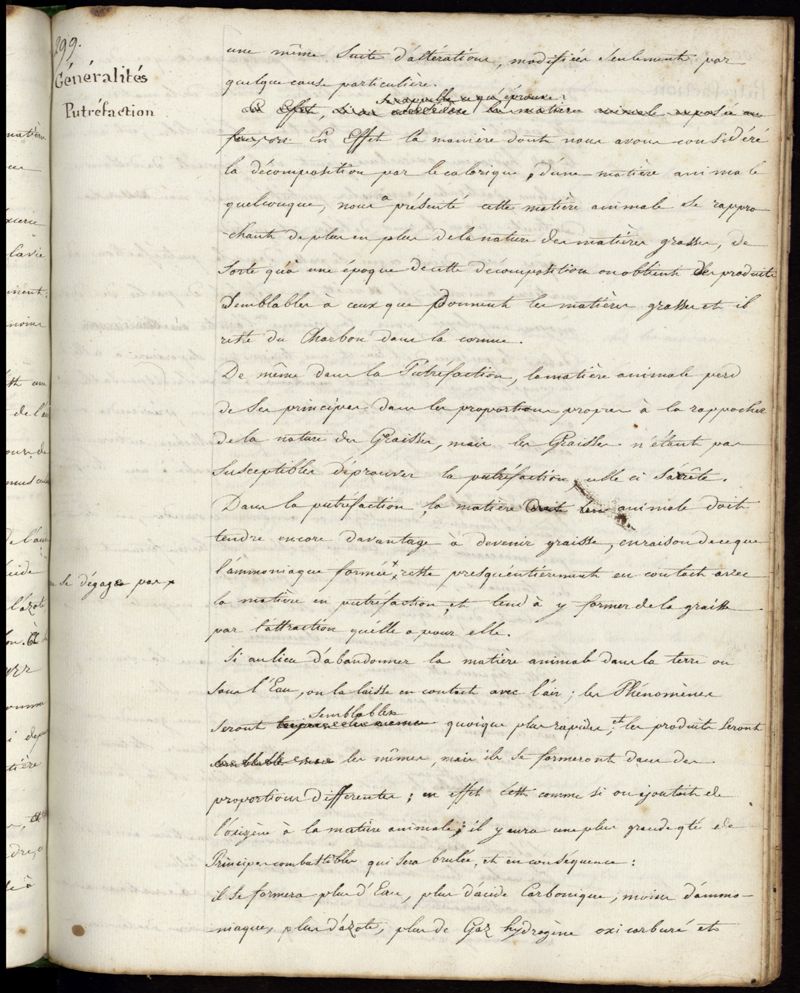 299.
Généralités
Putréfaction
une même suite d'altérations, modifiées seulement par
quelque cause particulière.
En Effet la manière dont nous avons considéré
la décomposition par le calorique, d'une matière animale
quelconque, nous a présenté cette matière animale se rappro
chant de plus en plus de la nature des matières grasses, de
sorte qu'à une époque de cette décomposition on obtient des produits
semblables à ceux que donnent les matières grasses et il
reste du Charbon dans la cornue.
De même dans la Putréfaction, la matière animale perd
de ses principes dans les proportions propres à la rapprocher
de la nature des Graisses, mais les Graisses n'étant pas
susceptibles d'éprouver la putréfaction, celle ci s'arrête.
Dans la putréfaction, la matière animale doit
tendre encore davantage à devenir graisse, en raison de ce que
l'ammoniaque formée + reste presqu'entièrement en contact avec
se dégage pas +
la matière en putréfaction, et tend à y former de la graisse
par l'attraction qu'elle a pour elle.
Si au lieu d'abandonner la matière animale dans la terre ou
sous l'Eau, on la laisse en contact avec l'air; les Phénomènes
seront semblables quoique plus rapides, et les produits seront
les mêmes, mais ils se formeront dans des
proportions differentes; en effet c'est comme si on ajoutait de
l'oxigène à la matière animale; il y aura une plus grande qté de
Principes combustibles qui sera brulée, et en conséquence:
il se formera plus d'Eau, plus d'acide Carbonique, moins d'ammo-
niaque, plus d'azote, plus de Gaz hydrogène oxicarburé et